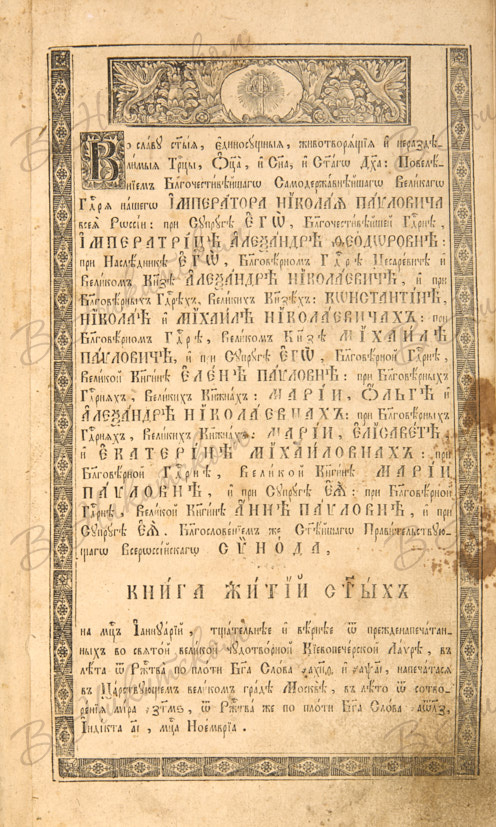 Во славу ст҃ыѧ, є҆диносущныѧ, животворѧщїѧ и҆ нераздѣ-
лимыѧ Трⷪ҇цы, Ѻ҆ц҃а, и҆ Сн҃а, и҆ Ст҃агѡ Дх҃а: Повелѣ-
нїемъ Бл҃гочестивѣйшагѡ Самодержавнѣйшагѡ Великагѡ
Гдⷭ҇рѧ нашегѡ І҆МПЕРАТОРА НІКОЛАѦ ПАѴЛОВИЧА
всеѧ̀ Рѡссіи: при Сꙋпрꙋгѣ Є҆ГѠ̀, Бл҃гочестивѣйшей Гдⷭ҇рнѣ,
І҆МПЕРАТРИЦѢ АЛЕѮАНДРѢ ѲЕОДѠРОВНѢ:
при Наслѣдникѣ Є҆ГѠ̀, Бл҃говѣрномъ Гдⷭ҇рѣ Цесаревичѣ и҆
Великомъ Кн҃зѣ АЛЕѮАНДРѢ НІКОЛАЕВИЧѢ, и҆ при
Бл҃говѣрныхъ Гдⷭ҇рѣхъ, Великихъ Кн҃зѣхъ: КѠНСТАНТІНѢ,
НІКОЛАѢ и҆ МІХАИЛѢ НІКОЛАЕВИЧАХЪ: при
Бл҃говѣрномъ Гдⷭ҇рѣ, Великомъ Кн҃зѣ МІХАИЛѢ
ПАѴЛОВИЧѢ, и҆ при Сꙋпрꙋгѣ Є҆ГѠ̀, Бл҃говѣрной Гдⷭ҇рнѣ,
Великой Кнѧги́нѣ ЕЛЕНѢ ПАѴЛОВНѢ: при Бл҃говѣрныхъ
Гдⷭ҇рнѧхъ, Великихъ Кнѧжнахъ: МАРІИ, Ѻ҆ЛЬГѢ и҆
АЛЕѮАНДРѢ НІКОЛАЕВНАХЪ: при Бл҃говѣрныхъ
Гдⷭ҇рнѧхъ, Великихъ Кнѧжнахъ: МАРІИ, ЕЛІСАВЕТѢ,
и҆ ЕКАТЕРІНѢ МІХАИЛОВНАХЪ: при
Бл҃говѣрной Гдⷭ҇рнѣ, Великой Кнѧгинѣ МАРІИ
ПАѴЛОВНѢ, и҆ при Сꙋпрꙋгѣ Є҆Ѧ̀: при Бл҃говѣрной
Гдⷭ҇рнѣ, Великой Кнѧгинѣ АННѢ ПАѴЛОВНѢ, и҆ при
Сꙋпрꙋгѣ Є҆Ѧ̀. Бл҃гословенїемъ же Ст҃ѣйшагѡ Правительствꙋю-
щагѡ Всерѡссійскагѡ СѴНОДА,
КНИГА ЖИТІЙ СТ҃ЫХЪ
на мцⷭ҇ъ І҆аннꙋарій, тщательнѣе и҆ вѣрнѣе ѿ прежденапечатан-
ныхъ во свѧтой великой чꙋдотворной Кіевопечерской Лаѵрѣ, въ
лѣта ѿ Ржⷭ҇тва по плоти Бг҃а Слова
напечатасѧ
въ Царствꙋющемъ великомъ градѣ Москвѣ, въ лѣто ѿ сотво-
ренїѧ міра ҂зтм҃ѕ, ѿ Ржⷭ҇тва же по плоти Бг҃а Слова ҂аѡл҃з,
І҆ндікта а҃і, мцⷭ҇а Ноемврїа.
В. Никитском